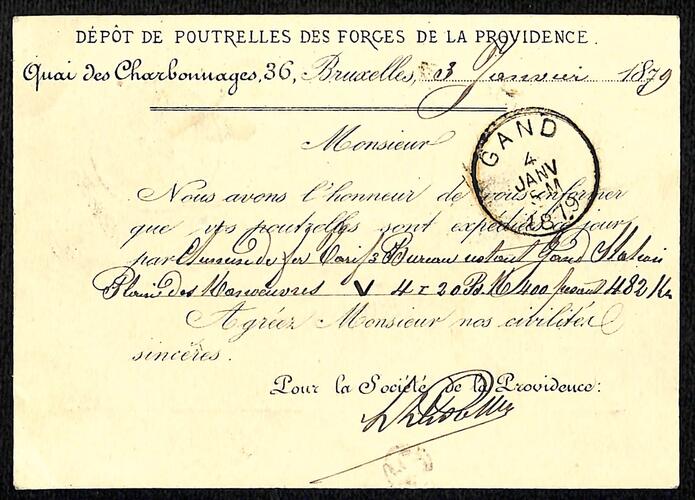 DÉPÔT DE POUTRELLES DES FORGES DE LA PROVIDENCE.
Quai des Charbonnages, 36, Bruxelles, 3 Janvier 1879
Monsieur
GAND
4
JANV
M
1879
Nous avons l'honneur de vous informer
que vos poutrelles sont expédiées à jour
par Chemin de fer Tarif 3 Bureau restant Gand Station
Plaine des Manoeuvres V 4 I 20 400 pesant 482 Ks
Agréez Monsieur nos civilités
sincères.
Pour la Société de la Providence: